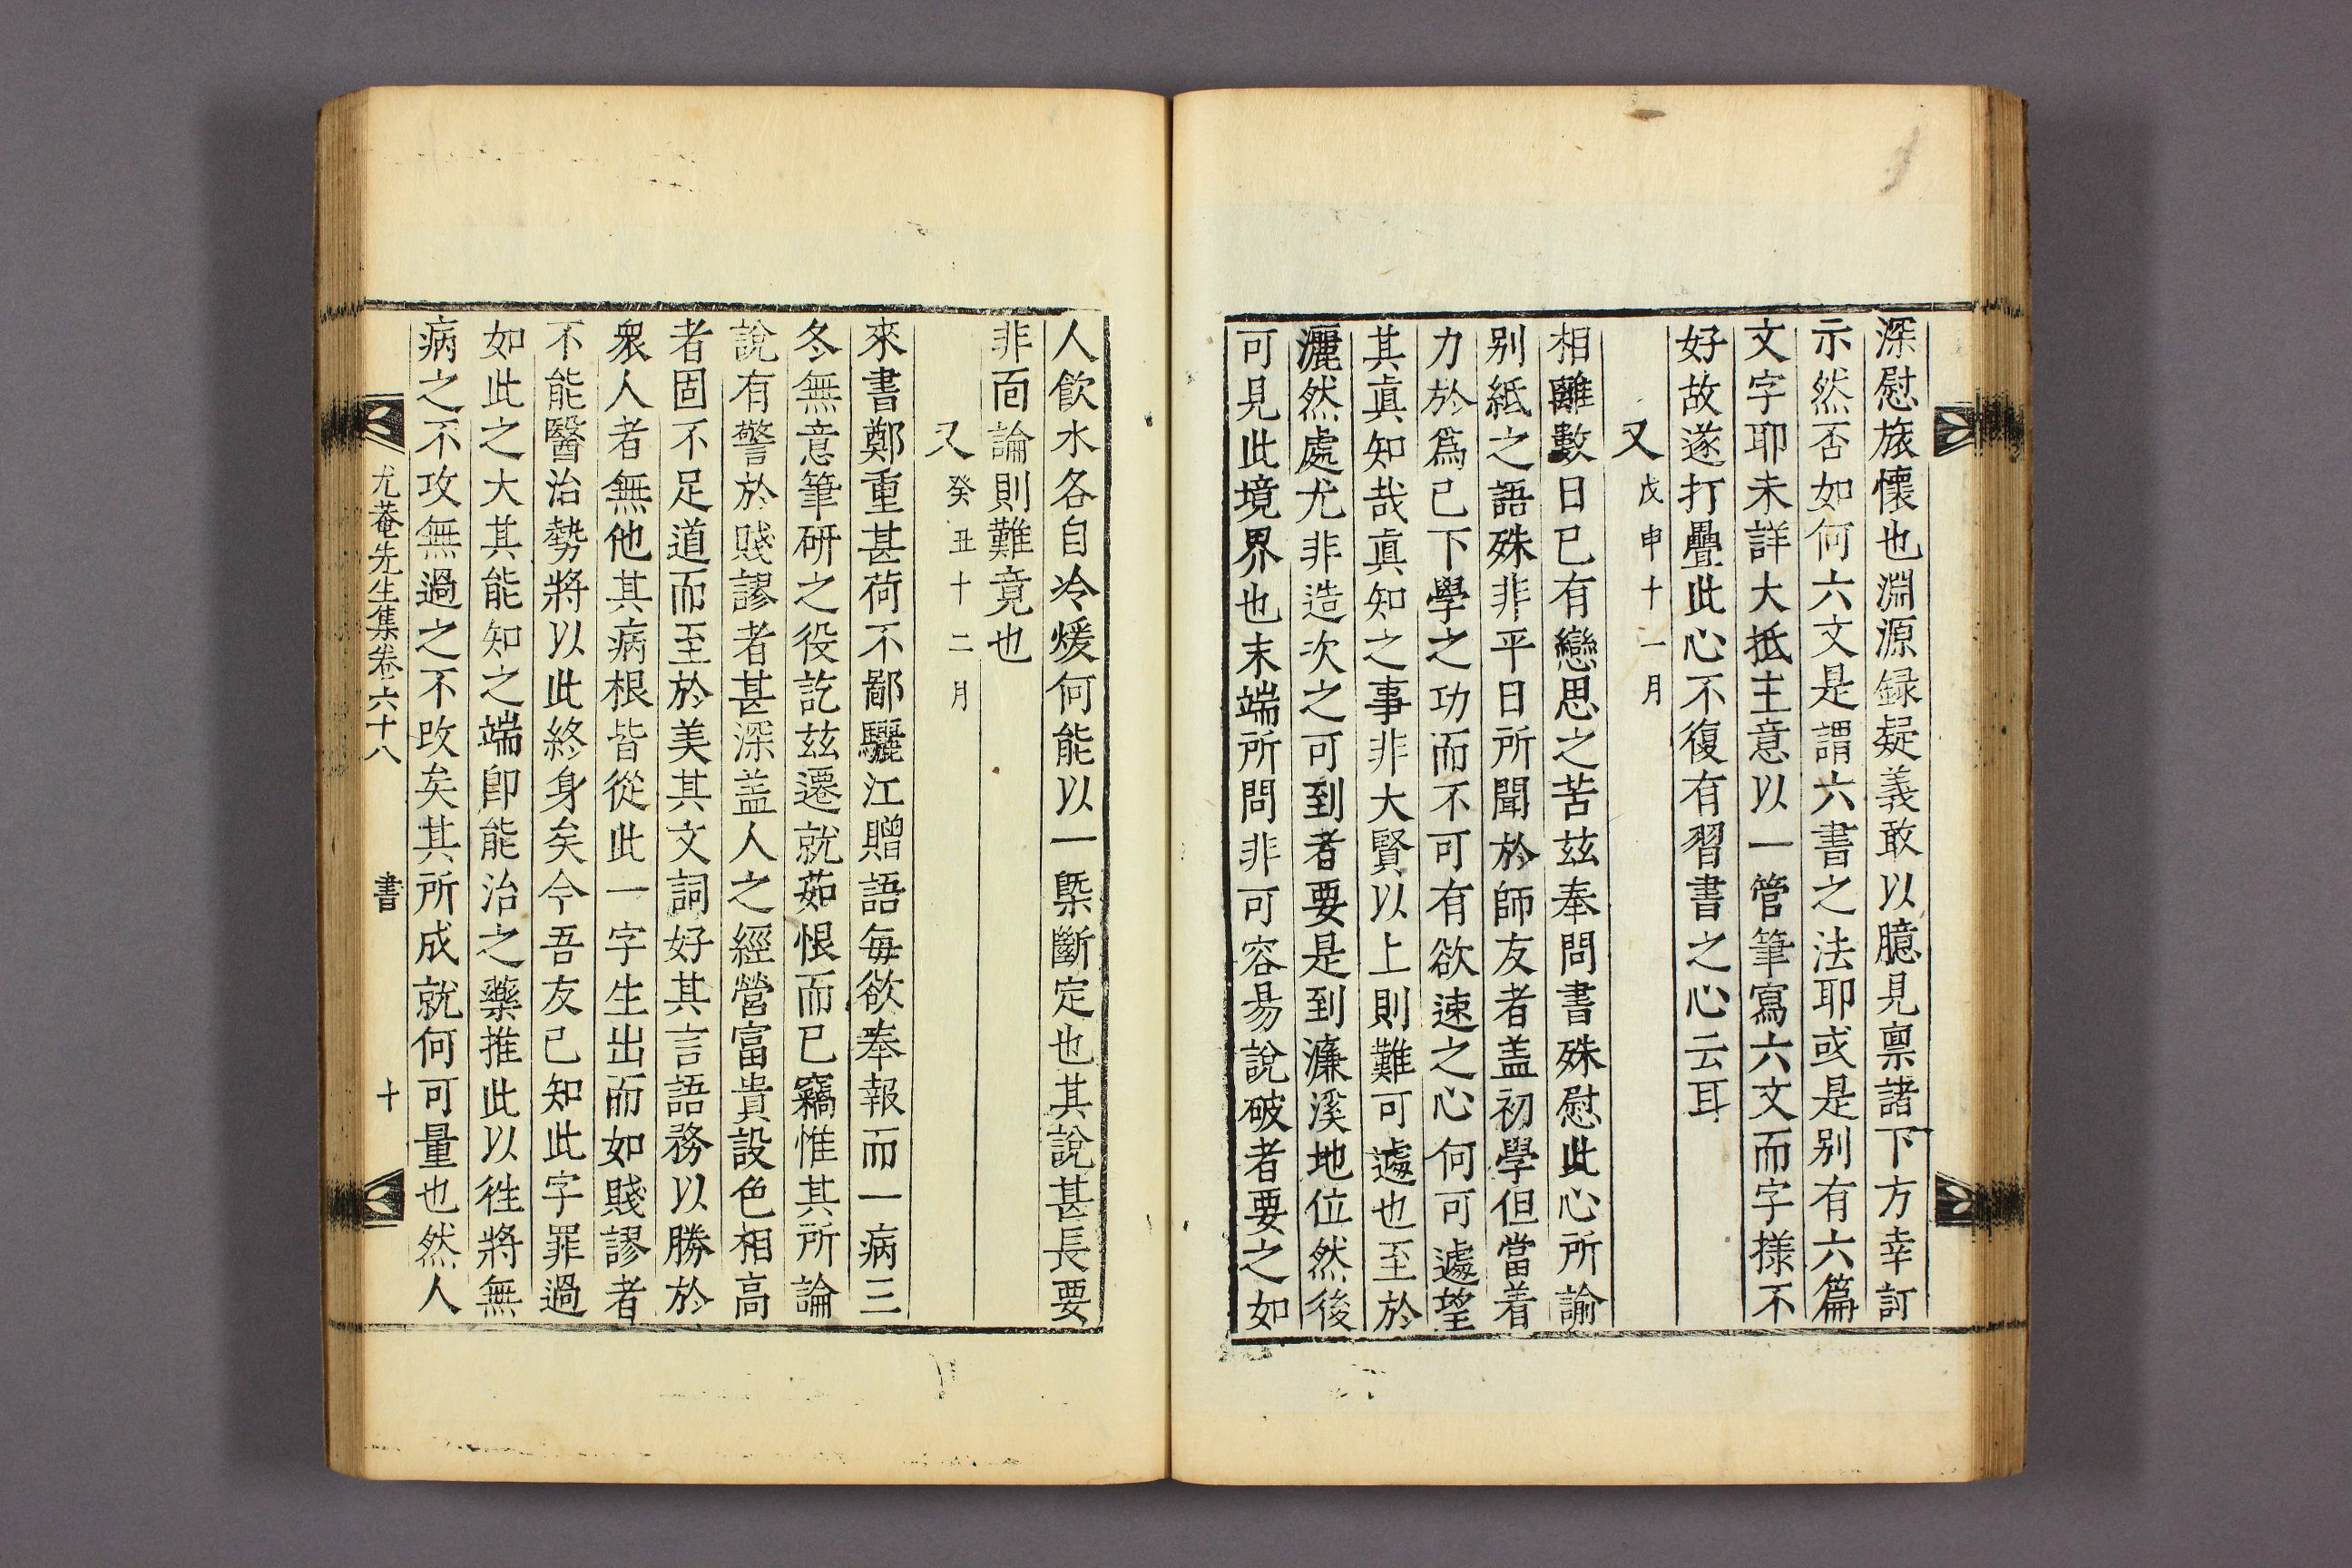 深慰旅懷也淵源録疑義敢以臆見禀諸下方幸訂
示然否如何六文是謂六書之法耶或是别有六篇
文字耶未詳大抵主意以一管筆寫六文而字様不
好故遂打疊此心不復有習書之心云耳
又戊申十一月
相離數日已有戀思之苦玆奉問書殊慰此心所諭
别紙之語殊非平日所聞於師友者盖初學但當着
力於爲已下學之功而不可有欲速之心何可遽望
其眞知哉眞知之事非大賢以上則難可遽也至於
灑然處尤非造次之可到者要是到濂溪地位然後
可見此境界也末端所問非可容易說破者要之如
人飮水各自冷煖何能以一槩斷定也其說甚長要
非面論則難竟也
又癸丑十二月
來書鄭重甚荷不鄙驪江贈語每欲奉報而一病三
冬無意筆硏之役訖玆遷就茹恨而已竊惟其所論
說有警於賤謬者甚深盖人之經營富貴設色相高
者固不足道而至於美其文詞好其言語務以勝於
衆人者無他其病根皆從此一字生出而如賤謬者
不能醫治勢將以此終身矣今吾友已知此字罪過
如此之大其能知之端卽能治之藥推此以徃將無
病之不攻無過之不改矣其所成就何可量也然人
尤菴先生集卷六十八 書 十